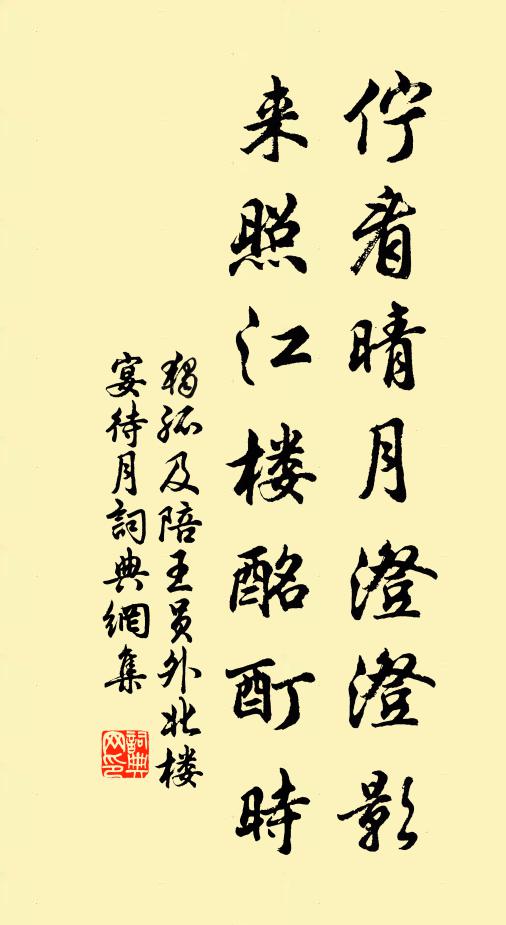 佇看晴月澄澄影
来照江楼酩酊时
独孤及陪王员外北楼
宴待月詞典網集
詞典
网印